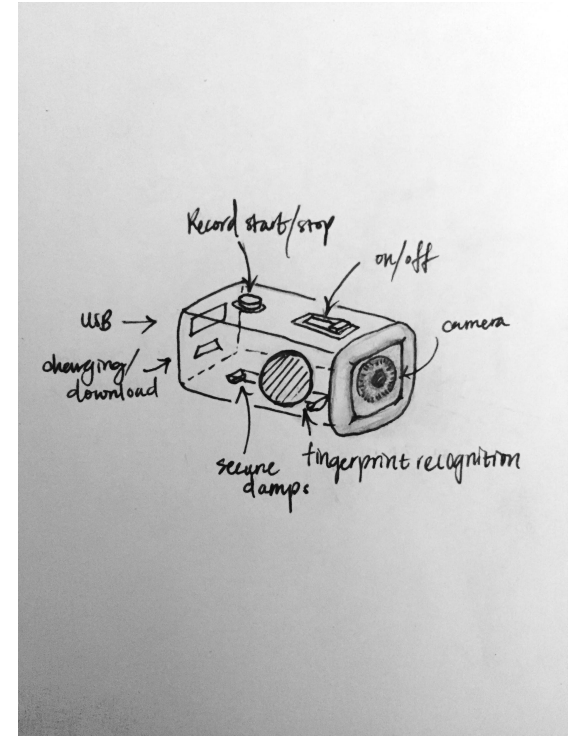 Record start/stop
on/off
USB
camera
charging/
download
secure
clamps
fingerprint recognition